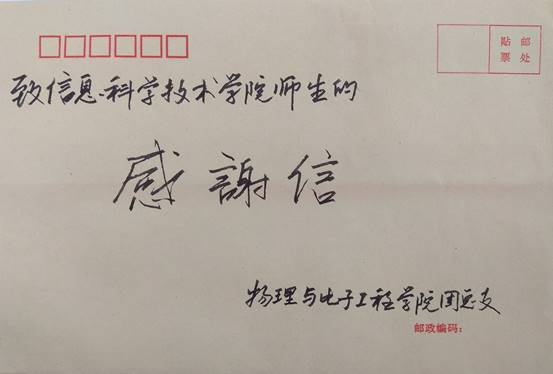 贴邮
票处
致信息科学技术学院师生的
感謝信
物理与电子工程学院团总支
邮政编码：